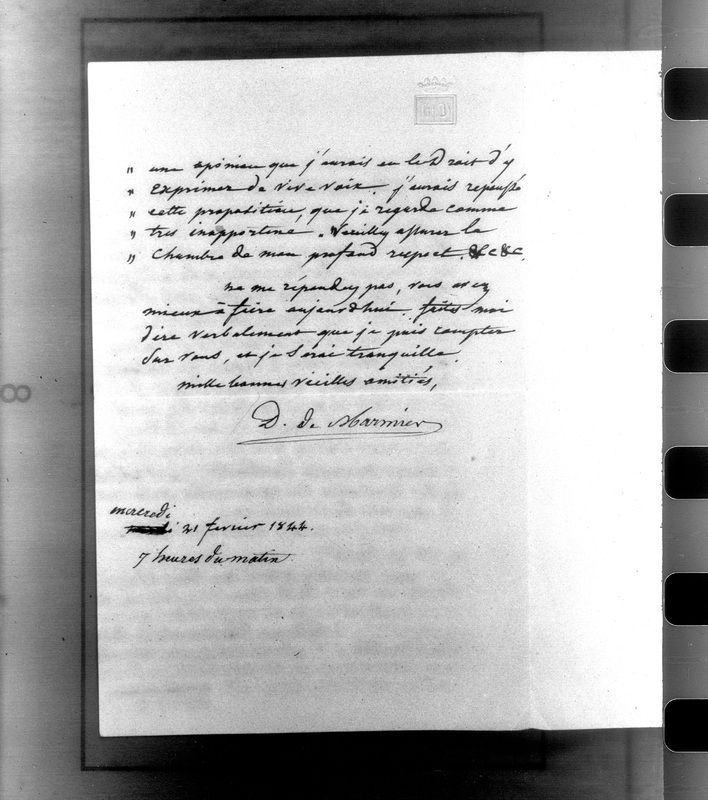 " une opinion que j'aurais eu le Droit d'y
" Exprimer de vive voix. j'aurais repoussé
" cette proposition, que je regarde comme
" tres inopportine. Veuilley assurer la
" Chambre de mon profond respect. &c &c.
ne me répondez pas, vous avez
mieux à faire aujourdhui. faites moi
dire verbalement que je puis compter
Sur vous, et je Serai tranquille.
mille bonnes vieilles amitiés,
D. de Marmier
mercredi
21 fevrier 1844.
7 heures du matin